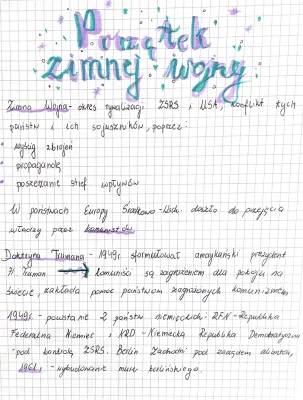 Początek
zimnej wojny
Zimna Wojna - okres rywalizacji ZSRS i USA, konflikt tych
państw i ich sojuszników, poprzez:
• wyścig zbrojeń
• propagandę
• poszerzanie stref wpływów
W państwach Europy Środkowo-Wsch. doszło do przejęcia
władzy przez komunistów
Doktryna Trumana - 1949r. sformułował amerykański prezydent
H. Truman → komuniści są zagrożeniem dla pokoju na
świecie, zakłada pomoc państwom zagrożonych komunizmem
1949r. - powstanie 2 państw niemieckich: RFN - Republika
Federalna Niemiec i NRD - Niemiecką Republika Demokratyczna
- pod kontrolą ZSRS. Berlin Zachodni pod zarządem aliantów,
1961r. - wybudowanie muru berlińskiego.